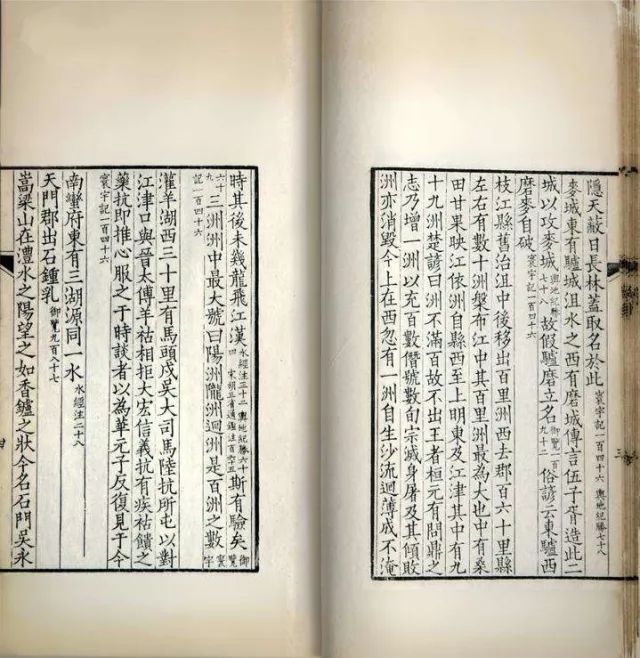 隱天蔽日長林蓋取名於此 寰宇記一百四十六 輿地紀勝七十八
麥城東有驢城沮水之西有磨城傳言伍子胥造此二
城以攻麥城 輿地紀勝七十八 故假驢磨立名 御覽一百九十二 俗諺云東驢西
磨麥自破 寰宇記一百四十六
枝江縣舊治沮中後移出百里洲西去郡百六十里縣
左右有數十洲槃布江中其百里洲最為大也中有桑
田甘果映江依洲自縣西至上明東及江津其中有九
十九洲楚諺曰洲不滿百故不出王者桓元有問鼎之
志乃增一洲以充百數僭號數旬宗滅身屠及其傾敗
洲亦消毀今上在西忽有一洲自生沙流迴薄成不淹
時其後未幾龍飛江漢 水經注三十四 輿地紀勝六十四 宋胡三省通鑑注百六五 斯有驗矣 御覽六十九 寰宇記一百四十六
三洲洲中最大號曰陽洲隴洲迴洲是百洲之數
灌羊湖西三十里有馬頭戍吳大司馬陸抗所屯以對
江津口與晉太傅羊祜相拒大宏信義抗有疾祜饋之
藥抗即推心服之于時談者以為華元子反復見于今
寰宇記一百四十六
南蠻府東有三湖源同一水 水經注二十八
天門郡出石鍾乳 御覽九百八十七
嵩梁山在澧水之陽望之如香鑪之狀今名石門吳永